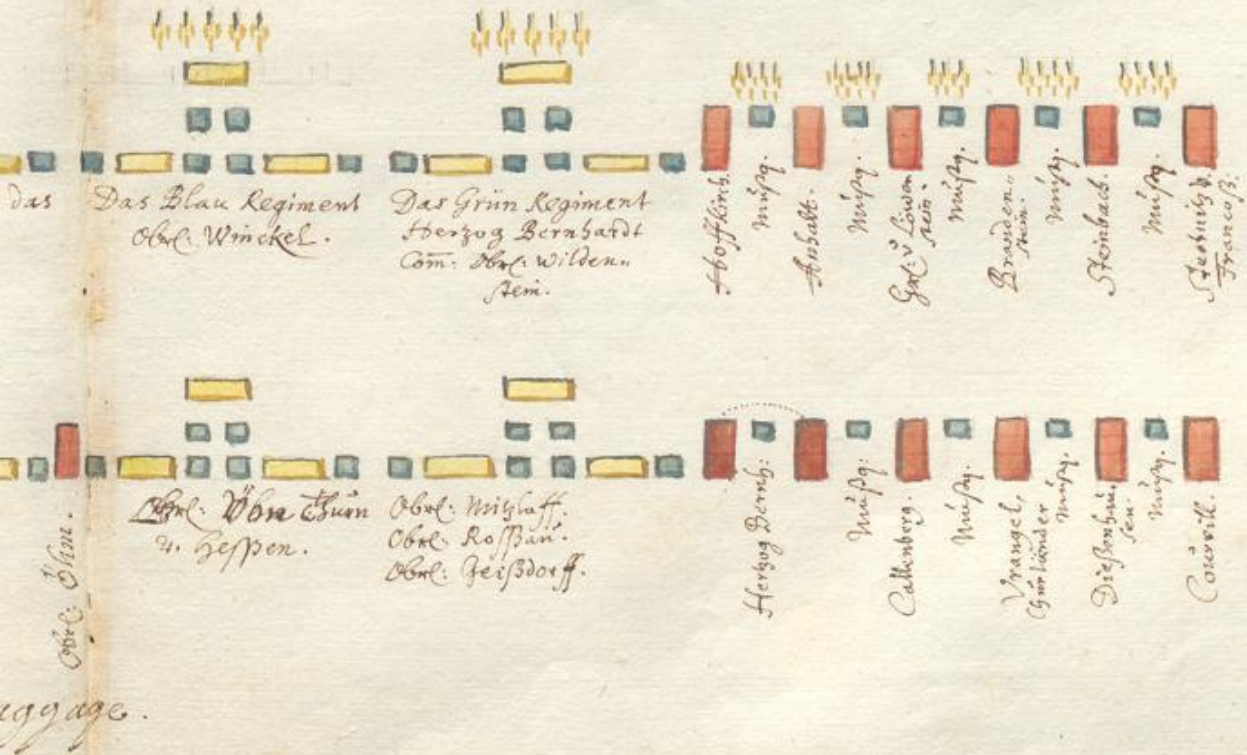 das
Das Blau Regiment
Obrl: Winckel.
Das Grün Regiment
Herzog Bernhardt
Com̄: Obrl: Wilden„
stein.
Hoffkirch.
Mußq.
Anhalt.
Mußq.
Grl: v Löwen
stein.
Mußq.
Branden„
stein.
Mußq.
Steinbach.
Mußq.
Stechnitz v.
Francoß:
Obrl: Öhm.
Obrl: Von Thurn
u. Heßen.
Obrl: Mitzlaff.
Obrl: Roßau.
Obrl: Geißdorff.
Hertzog Bernh:
Mußq:
Callenberg.
Mußq.
Vrangel,
Churländer
Mußq.
Dießenhau„
sen.
Mußq.
Courvill.
aggage.